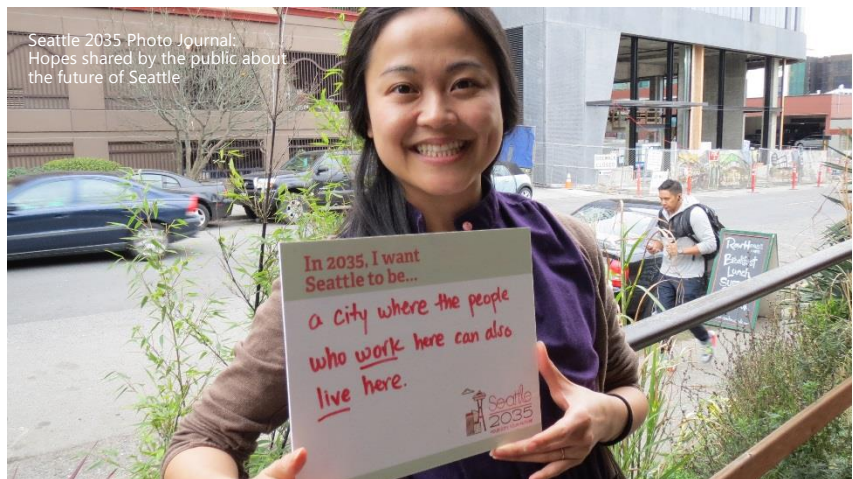 Seattle 2035 Photo Journal:
Hopes shared by the public about
the future of Seattle
In 2035, I want
Seattle to be...
a city where the people
who work here can also
live here.
Seattle
2035
Breakfast
Lunch